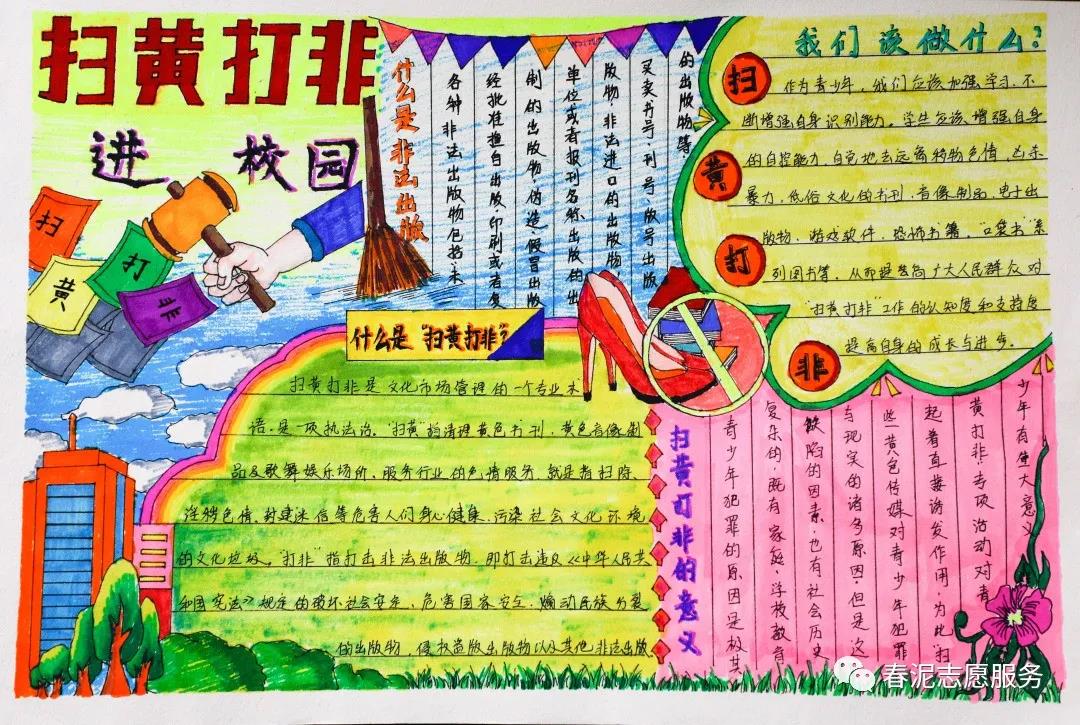 扫黄打非
进 校园
扫
黄
打
非
什么是非法出版
各种非法出版物包括未
经批准擅自出版、印刷或者复
制的出版物,伪造、假冒出版
单位或者报刊名称出版的出
版物,非法进口的出版物,
买卖书号、刊号、版号出版
的出版物等
我们该做什么?
扫
黄
打
非
作为青少年,我们应该加强学习,不
断增强自身识别能力。学生应该增强自身
的自控能力,自觉地去远离
暴力,低俗文化的书刊、音像制品、电子出
版物、游戏软件、恐怖书籍、“口袋书”系
列图书等,从而提高广大人民群众对
“扫黄打非”工作的认知度和支持度
提高自身的成长与进步。
什么是“扫黄打非”?
扫黄打非是文化市场管理的一个专业术
语,是一项执法活。“扫黄”指清理黄色书刊,黄色音像制
品及歌舞娱乐场所、服务行业的色情服务,就是指扫除
淫秽色情、封建迷信等危害人们身心健康、污染社会文化环境
的文化垃圾。“打非”指打击非法出版物,即打击违反《中华人民共
和国宪法》规定的破坏社会安定、危害国家安全、煽动民族分裂
的出版物,侵权盗版出版物以及其他非法出版
扫黄打非的意义
青少年犯罪的原因是极其
复杂的,既有家庭、学校教育
缺陷的因素,也有社会历史
与现实的诸多原因,但是这
些黄色传媒对青少年犯罪
起着直接诱发作用,为此“扫
黄打非”专项活动对青
少年有重大意义
春泥志愿服务